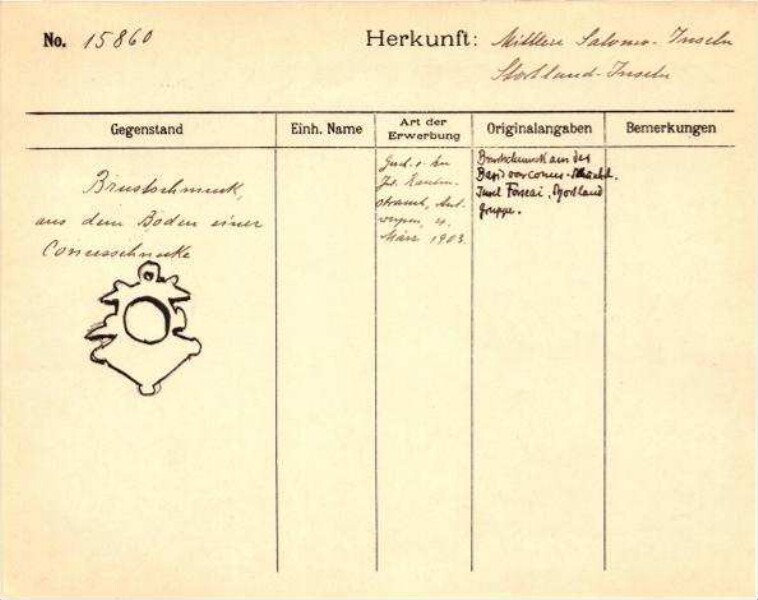 No. 15860
Herkunft: Mittlere Salomo-Inseln
Shortland-Inseln
Gegenstand
Einh. Name
Art der Erwerbung
Originalangaben
Bemerkungen
Brustschmuck,
aus dem Boden einer
Conusschnecke
Gesch. v.
März 1903
Brustschmuck aus der
Basis von Conus-
Insel Fauro, Shortland
Gruppe.